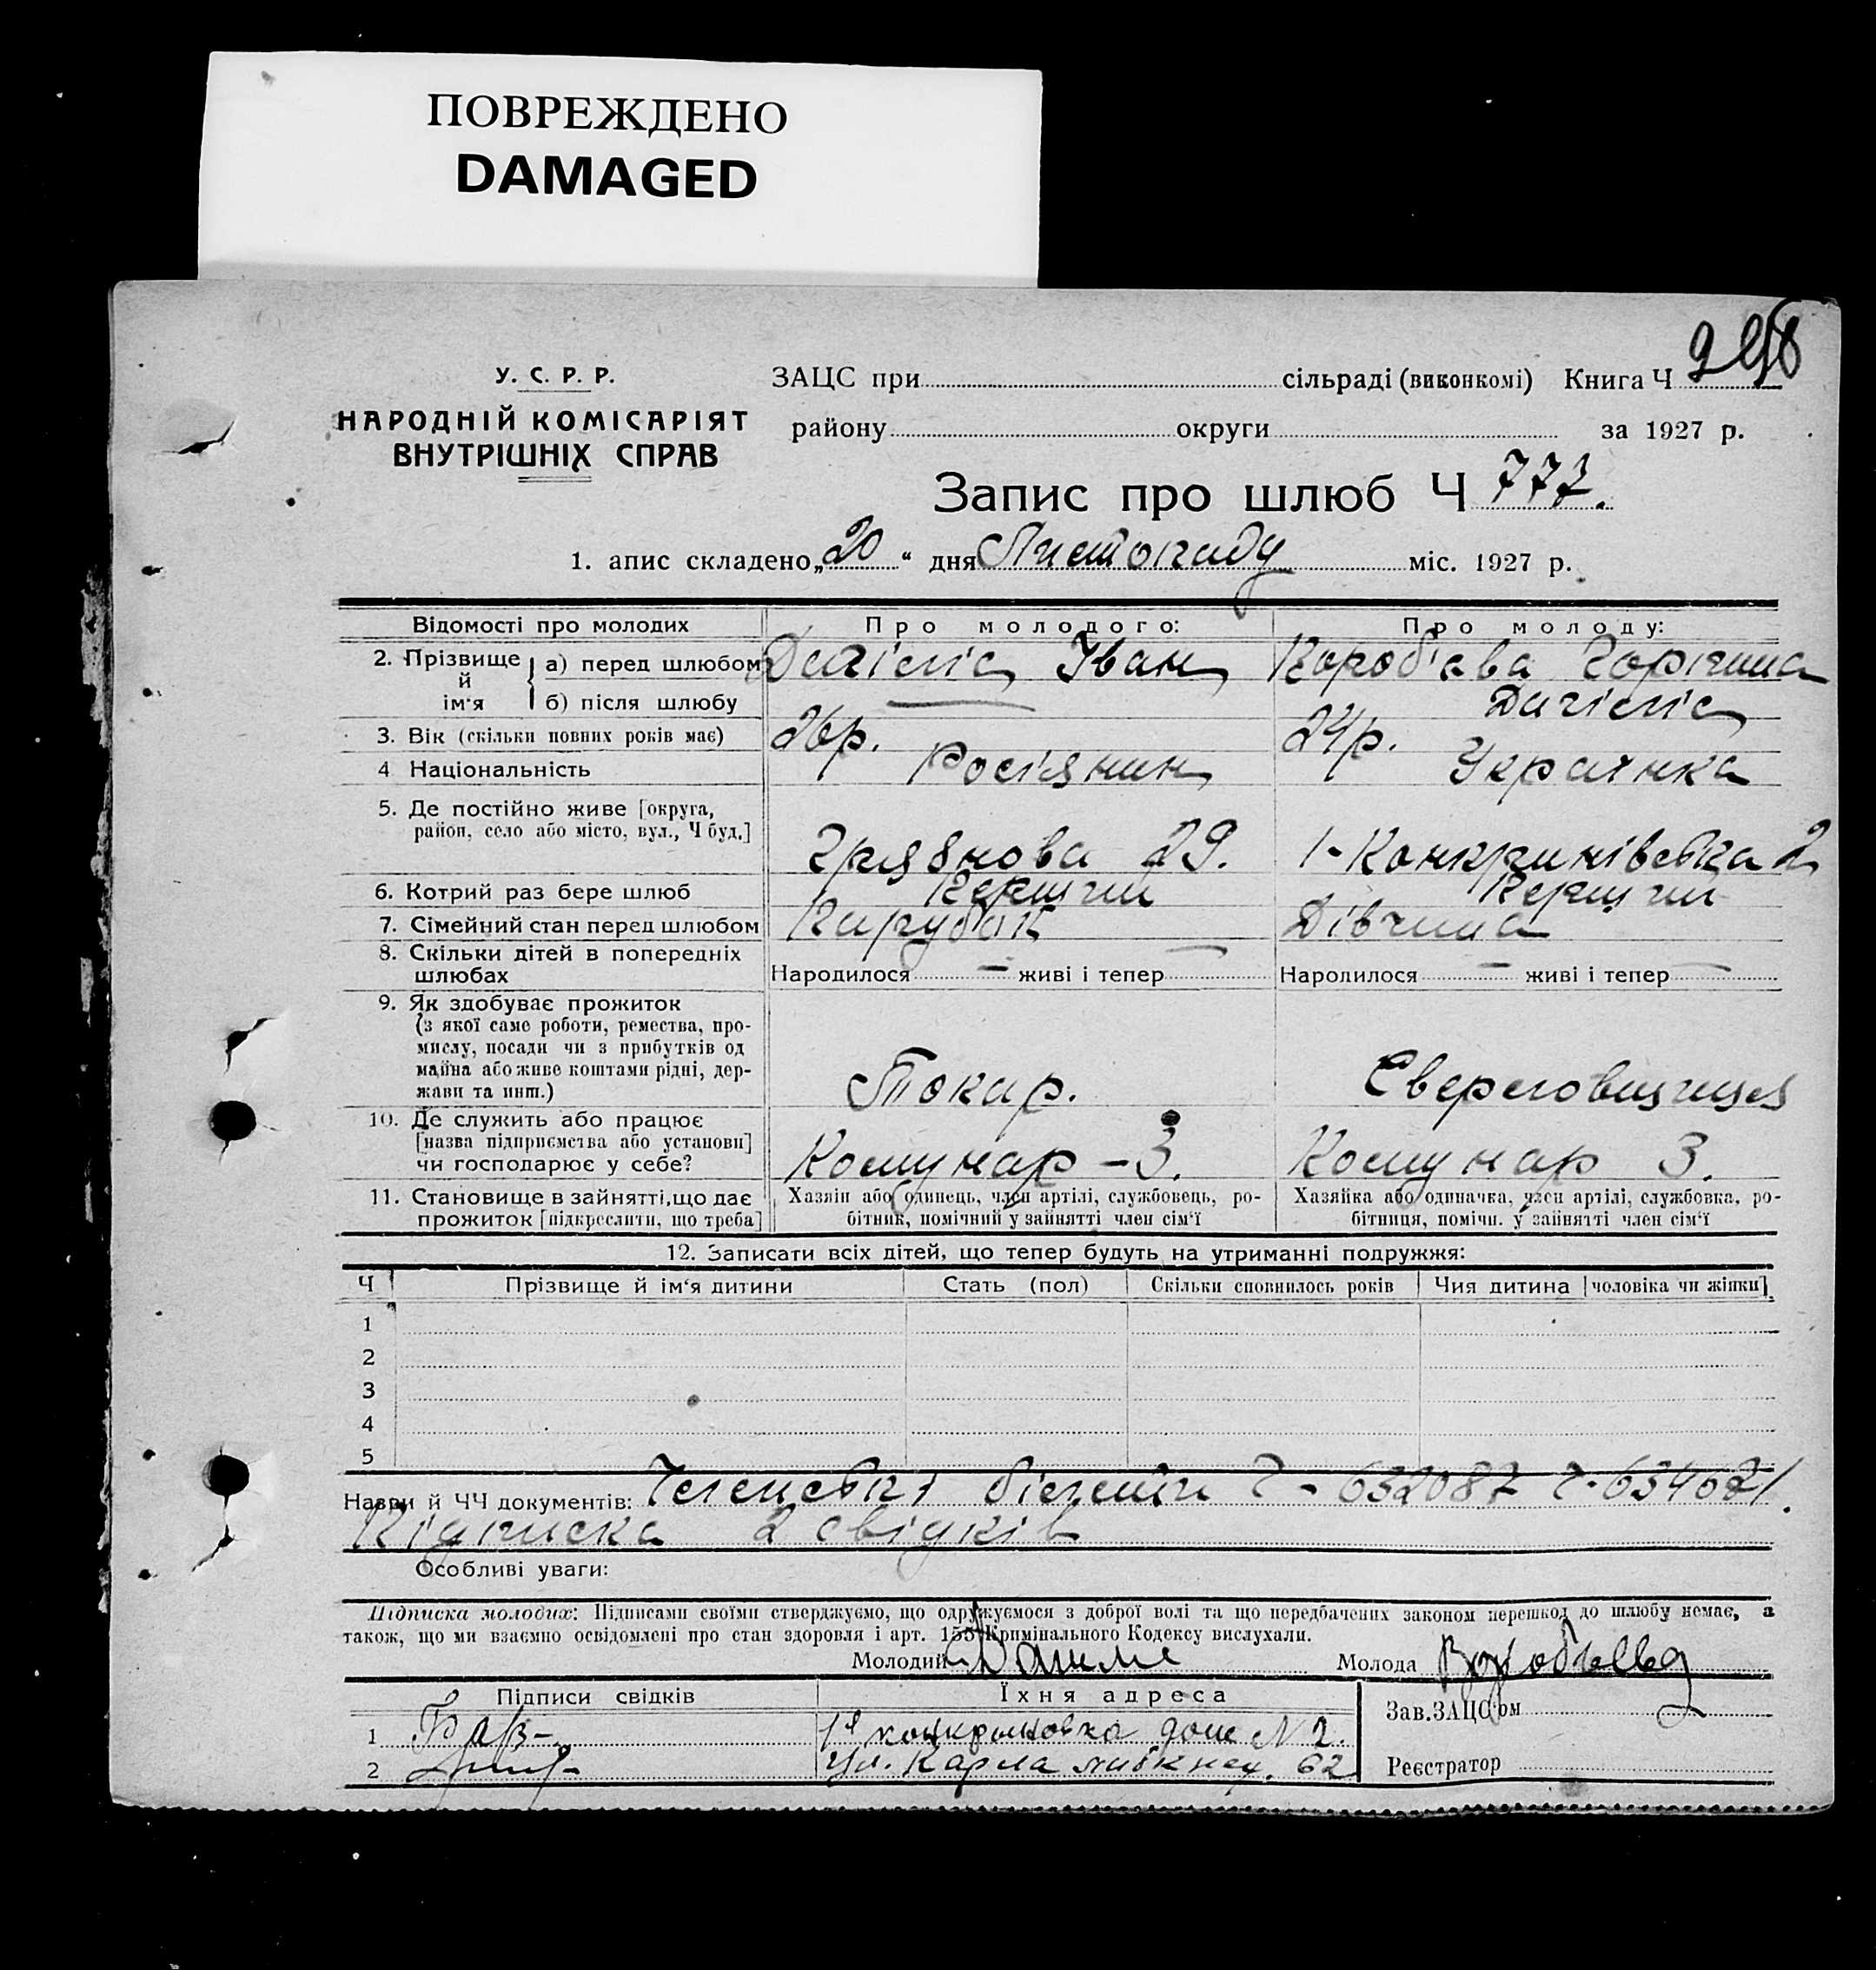 ПОВРЕЖДЕНО
DAMAGED
У. С. Р. Р.
НАРОДНІЙ КОМІСАРІЯТ
ВНУТРІШНІХ СПРАВ
ЗАЦС при сільраді (виконкомі) Книга Ч
району округи за 1927 р.
Запис про шлюб Ч 777.
1. апис складено „20“ дня Листопаду міс. 1927 р.
Відомості про молодих
Про молодого:
Про молоду:
2. Прізвище й ім'я
а) перед шлюбом
Іван
б) після шлюбу
3. Вік (скільки повних років має)
26р.
24р.
4 Національність
Росіянин
Украінка
5. Де постійно живе [округа,
район, село або місто, вул., Ч буд.]
29.
2
6. Котрий раз бере шлюб
Перший
Перший
7. Сімейний стан перед шлюбом
Парубок
Дівчина
8. Скільки дітей в попередніх
шлюбах
Народилося — живі і тепер —
Народилося — живі і тепер —
9. Як здобуває прожиток
(з якої саме роботи, ремества, про-
мислу, посади чи з прибутків од
майна або живе коштами рідні, дер-
жави та инш.)
Токар.
10. Де служить або працює
[назва підприємства або установи]
чи господарює у себе?
Комунар - 3.
Комунар 3.
11. Становище в зайнятті, що дає
прожиток [підкреслити, що треба]
Хазяін або одинець, член артілі, службовець, ро-
бітник, помічний у зайнятті член сім'ї
Хазяйка або одиначка, член артілі, службовка, ро-
бітниця, помічн. у зайнятті член сім'ї
12. Записати всіх дітей, що тепер будуть на утриманні подружжя:
Ч Прізвище й ім'я дитини Стать (пол) Скільки сповнилось років Чия дитина [чоловіка чи жінки]
1
2
3
4
5
Назви й ЧЧ документів: Членські білети Ч - 632087
Підписка 2 свідків
Особливі уваги:
Підписка молодих: Підписами своїми стверджуємо, що одружуємося з доброї волі та що передбачених законом перешкод до шлюбу немає, а
також, що ми взаємно освідомлені про стан здоровля і арт. 155 Кримінального Кодексу вислухали.
Молодий
Молода
Підписи свідків
Їхня адреса
Зав. ЗАЦС'ом
1
дом N 2.
2
Ул. Карла 62
Реєстратор